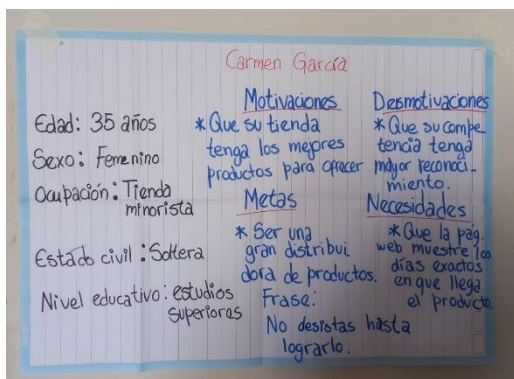 Carmen García
Edad: 35 años
Sexo: Femenino
Ocupación: Tienda
minorista
Estado civil: Soltera
Nivel educativo: estudios
superiores
Motivaciones
* Que su tienda
tenga los mejores
productos para ofrecer
Metas
* Ser una
gran distribui
dora de productos.
Frase:
No desistas hasta
lograrlo.
Desmotivaciones
* Que su compe
tencia tenga
mayor reconoci-
miento.
Necesidades
* Que la pág.
web muestre los
días exactos
en que llega
el producto.